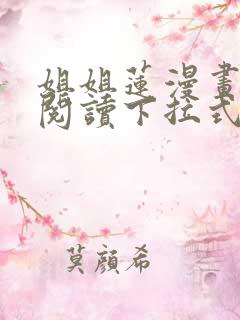 姐姐蓮漫畫
閱讀下拉式
莫顏希